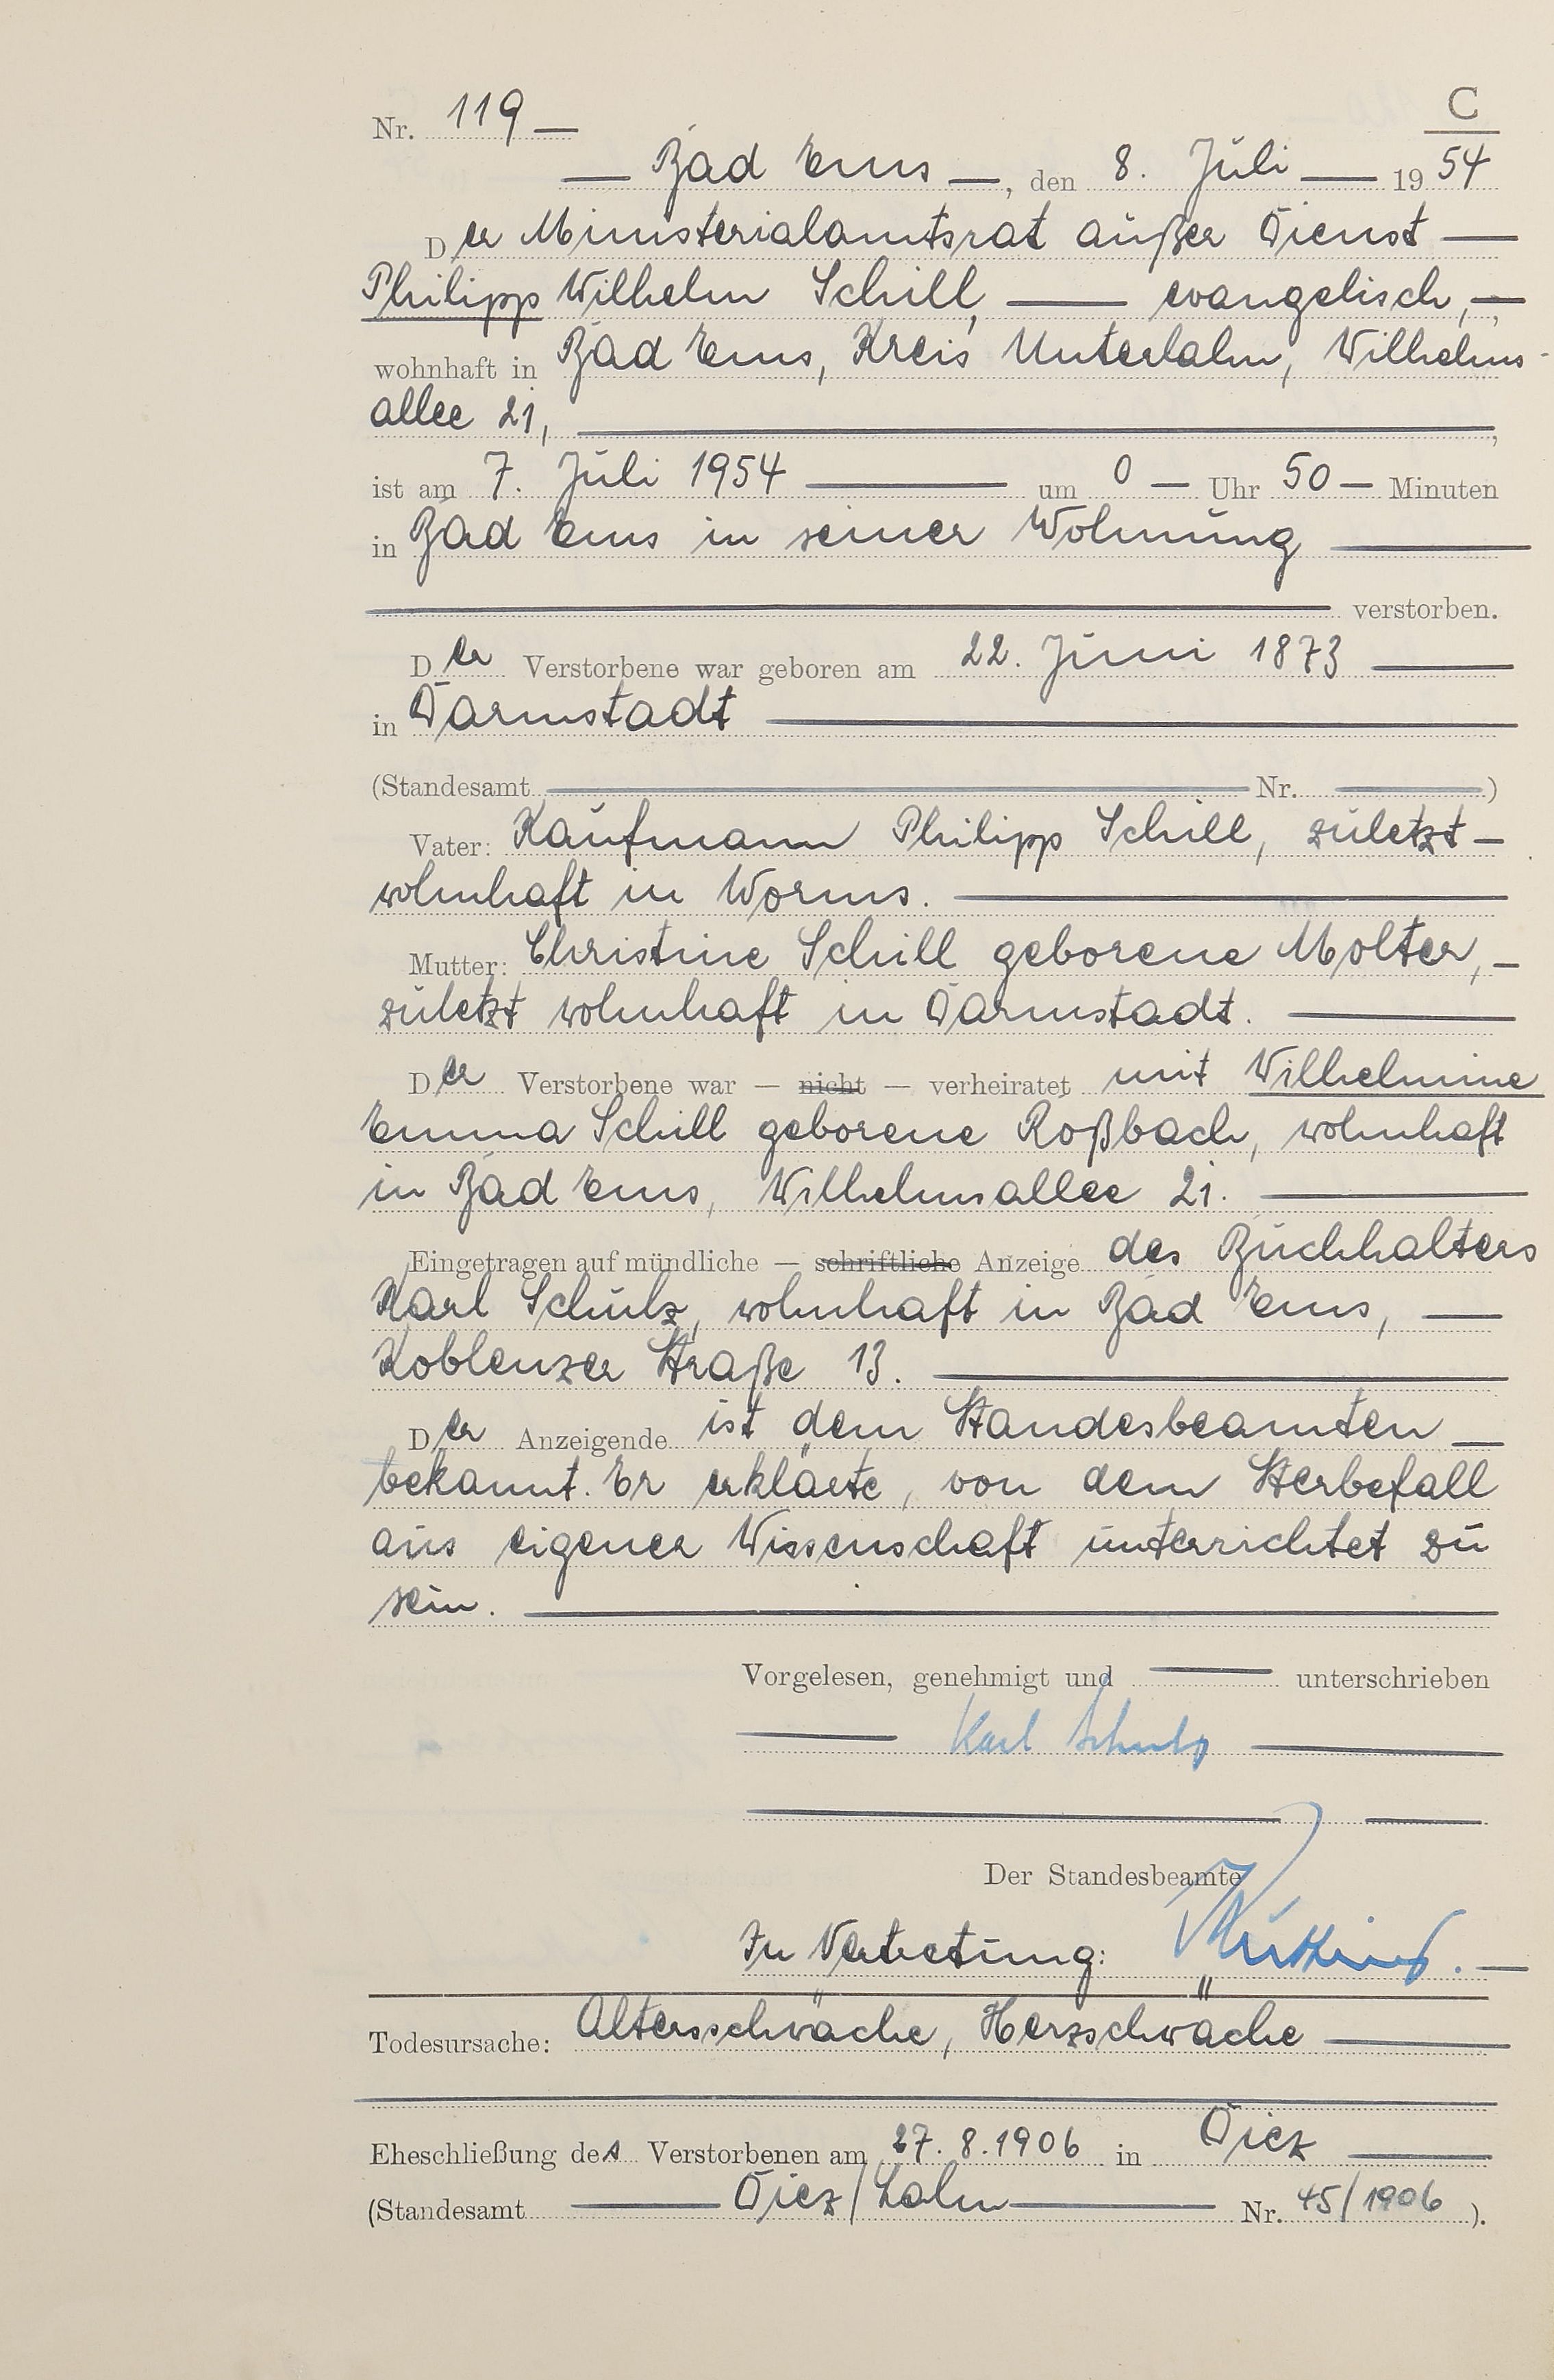 C
Nr. 119 —
— Bad Ems —, den 8. Juli — 19 54
Der Ministerialamtsrat außer Dienst —
Philipp Wilhelm Schill, — evangelisch, —,
wohnhaft in Bad Ems, Kreis Unterlahn, Wilhelms-
allee 21, —,
ist am 7. Juli 1954 — um 0 — Uhr 50 — Minuten
in Bad Ems in seiner Wohnung —
— verstorben.
Der Verstorbene war geboren am 22. Juni 1873 —
in Darmstadt —
(Standesamt — Nr. —)
Vater: Kaufmann Philipp Schill, zuletzt —
wohnhaft in Worms. —
Mutter: Christine Schill geborene Molter, —
zuletzt wohnhaft in Darmstadt. —
Der Verstorbene war — nicht — verheiratet mit Wilhelmine
Emma Schill geborene Roßbach, wohnhaft
in Bad Ems, Wilhelmsallee 21. —
Eingetragen auf mündliche — schriftliche Anzeige des Buchhalters
Karl Schulz, wohnhaft in Bad Ems, —
Koblenzer Straße 13. —
Der Anzeigende ist dem Standesbeamten —
bekannt. Er erklärte, von dem Sterbefall
aus eigener Wissenschaft unterrichtet zu
sein. —
Vorgelesen, genehmigt und — unterschrieben
— Karl Schulz —
Der Standesbeamte
In Vertretung:
Todesursache: Altersschwäche, Herzschwäche —
Eheschließung des Verstorbenen am 27.8.1906 in Diez —
(Standesamt — Diez/Lahn — Nr. 45/1906 ).